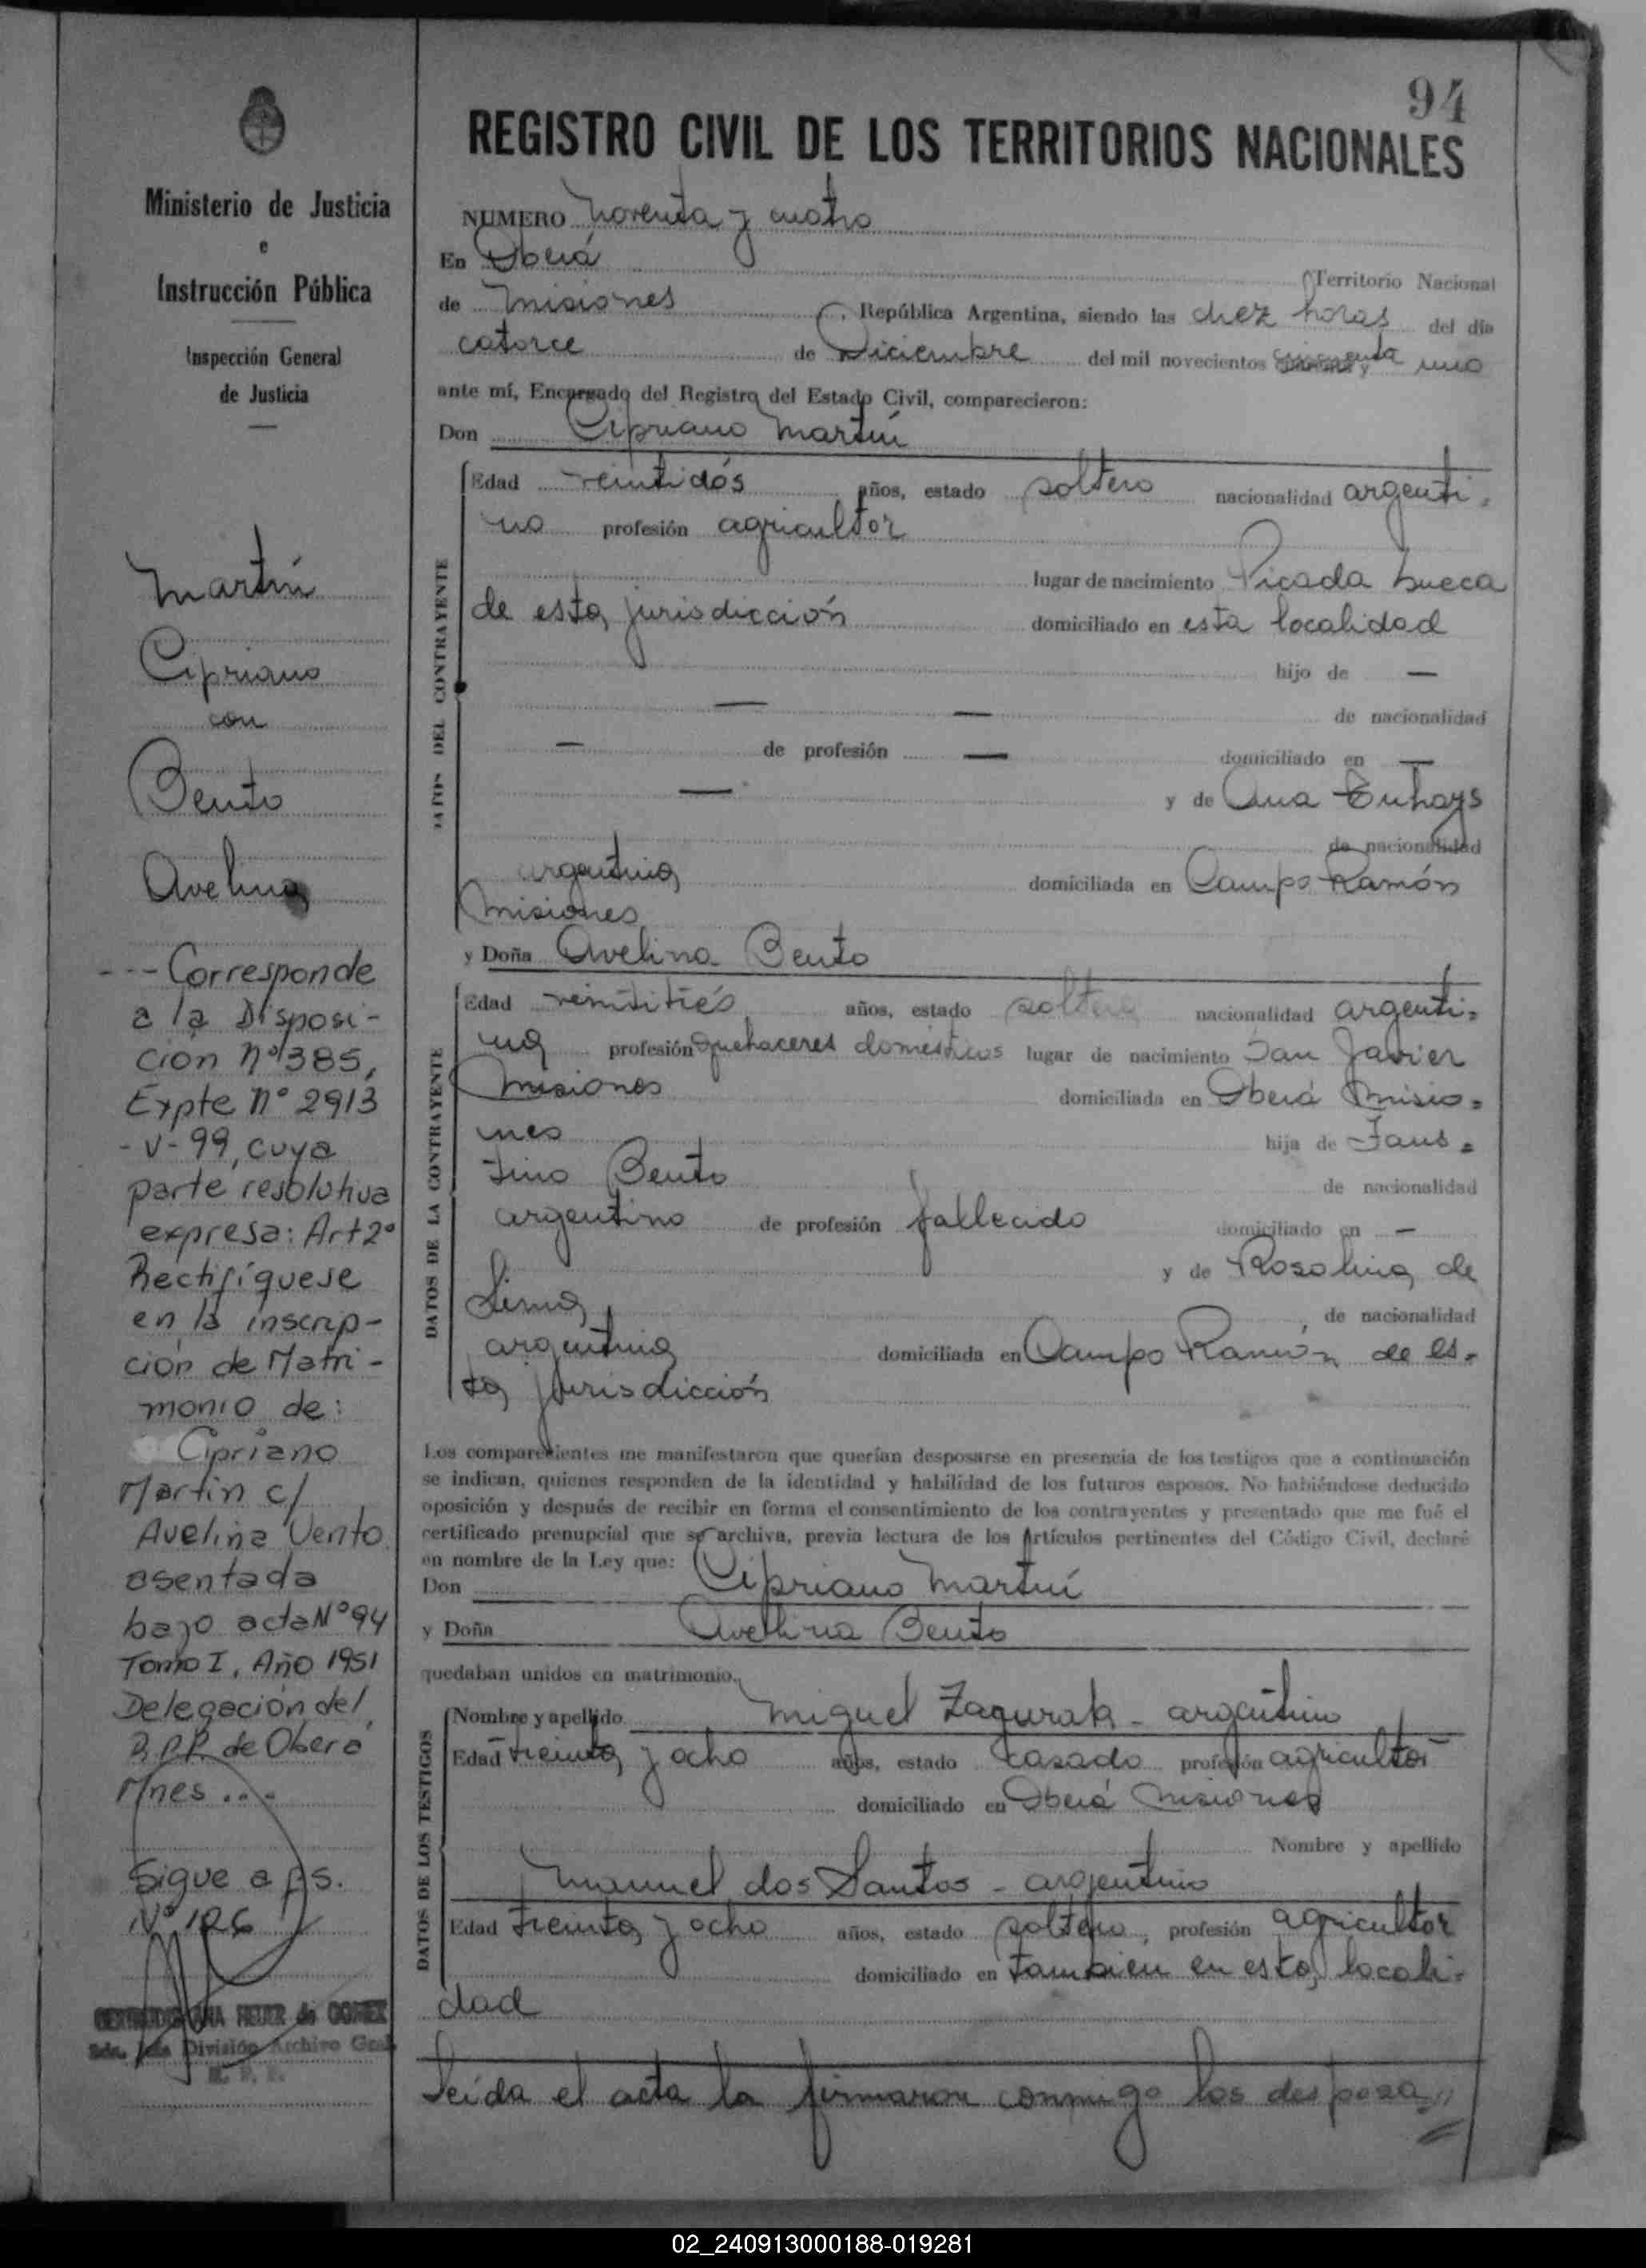 94
Ministerio de Justicia
e
Instrucción Pública
Inspección General
de Justicia
Martín
Cipriano
con
Bento
Avelina
--- Corresponde
a la Disposi-
ción Nº 385,
Expte Nº 2913
-V-99, cuya
parte resolutiva
expresa: Art 2º
Rectifíquese
en la inscrip-
ción de Matri-
monio de:
Cipriano
Martin c/
Avelina Vento
asentada
bajo acta Nº 94
Tomo I, Año 1951
Delegación del
R.P.P. de Obera
Mnes ...
Sigue a fs.
Nº 126
ANA de GOMEZ
División Archivo Gral
REGISTRO CIVIL DE LOS TERRITORIOS NACIONALES
NUMERO noventa y cuatro
En Oberá Territorio Nacional
de Misiones, República Argentina, siendo las diez horas del día
catorce de Diciembre del mil novecientos cincuenta y uno
ante mí, Encargado del Registro del Estado Civil, comparecieron:
Don Cipriano Martín
DATOS DEL CONTRAYENTE
Edad veintidós años, estado soltero nacionalidad argenti=
no profesión agricultor
lugar de nacimiento Picada
de esta jurisdicción domiciliado en esta localidad
hijo de —
— — de nacionalidad
— de profesión — domiciliado en —
— y de Ana
de nacionalidad
argentina domiciliada en Campo Ramón
Misiones
y Doña Avelina Bento
DATOS DE LA CONTRAYENTE
Edad veintitrés años, estado soltera nacionalidad argenti=
na profesión quehaceres domésticos lugar de nacimiento San Javier
Misiones domiciliada en Oberá Misio=
nes hija de Faus=
tino Bento de nacionalidad
argentino de profesión fallecido domiciliado en —
y de Rosolina de
Lima, de nacionalidad
argentina domiciliada en Campo Ramón de es=
ta jurisdicción
Los comparecientes me manifestaron que querían desposarse en presencia de los testigos que a continuación
se indican, quienes responden de la identidad y habilidad de los futuros esposos. No habiéndose deducido
oposición y después de recibir en forma el consentimiento de los contrayentes y presentado que me fué el
certificado prenupcial que se archiva, previa lectura de los Artículos pertinentes del Código Civil, declaré
en nombre de la Ley que:
Don Cipriano Martín
y Doña Avelina Bento
quedaban unidos en matrimonio.
DATOS DE LOS TESTIGOS
Nombre y apellido Miguel - argentino
Edad treinta y ocho años, estado casado profesión agricultor
domiciliado en Oberá Misiones
Nombre y apellido
Manuel dos Santos - argentino
Edad treinta y ocho años, estado soltero, profesión agricultor
domiciliado en también en esta locali=
dad
Leída el acta la firmaron conmigo los desposa//
02_240913000188-019281